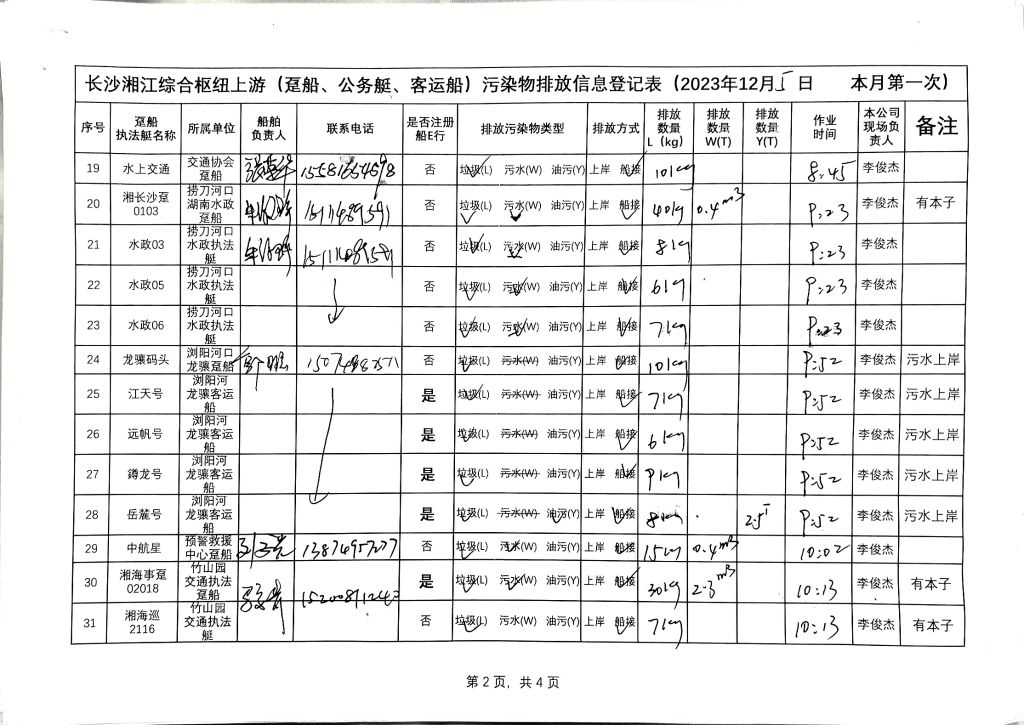 长沙湘江综合枢纽上游（趸船、公务艇、客运船）污染物排放信息登记表（2023年12月5日 本月第一次）
序号 趸船执法艇名称 所属单位 船舶负责人 联系电话 是否注册船E行 排放污染物类型 排放方式 排放数量L（kg） 排放数量W(T) 排放数量Y(T) 作业时间 本公司现场负责人 备注
19 水上交通 交通协会趸船 否 垃圾(L) 污水(W) 油污(Y) 上岸 船接 10kg 8:45 李俊杰
20 湘长沙趸0103 捞刀河口湖南水政趸船 15111489591 否 垃圾(L) 污水(W) 油污(Y) 上岸 船接 40kg 0.4m³ 9:23 李俊杰 有本子
21 水政03 捞刀河口水政执法艇 15111489591 否 垃圾(L) 污水(W) 油污(Y) 上岸 船接 8kg 9:23 李俊杰
22 水政05 捞刀河口水政执法艇 否 垃圾(L) 污水(W) 油污(Y) 上岸 船接 6kg 9:23 李俊杰
23 水政06 捞刀河口水政执法艇 否 垃圾(L) 污水(W) 油污(Y) 上岸 船接 7kg 9:23 李俊杰
24 龙骧码头 浏阳河口龙骧趸船 否 垃圾(L) 污水(W) 油污(Y) 上岸 船接 10kg 9:52 李俊杰 污水上岸
25 江天号 浏阳河龙骧客运船 是 垃圾(L) 污水(W) 油污(Y) 上岸 船接 7kg 9:52 李俊杰 污水上岸
26 远帆号 浏阳河龙骧客运船 是 垃圾(L) 污水(W) 油污(Y) 上岸 船接 6kg 9:52 李俊杰 污水上岸
27 鐏龙号 浏阳河龙骧客运船 是 垃圾(L) 污水(W) 油污(Y) 上岸 船接 9kg 9:52 李俊杰 污水上岸
28 岳麓号 浏阳河龙骧客运船 是 垃圾(L) 污水(W) 油污(Y) 上岸 船接 8kg 2.5T 9:52 李俊杰 污水上岸
29 中航星 预警救援中心趸船 13874957277 否 垃圾(L) 污水(W) 油污(Y) 上岸 船接 15kg 0.4m³ 10:02 李俊杰
30 湘海事趸02018 竹山园交通执法趸船 是 垃圾(L) 污水(W) 油污(Y) 上岸 船接 30kg 2.3m³ 10:13 李俊杰 有本子
31 湘海巡2116 竹山园交通执法艇 否 垃圾(L) 污水(W) 油污(Y) 上岸 船接 7kg 10:13 李俊杰 有本子
第 2 页，共 4 页